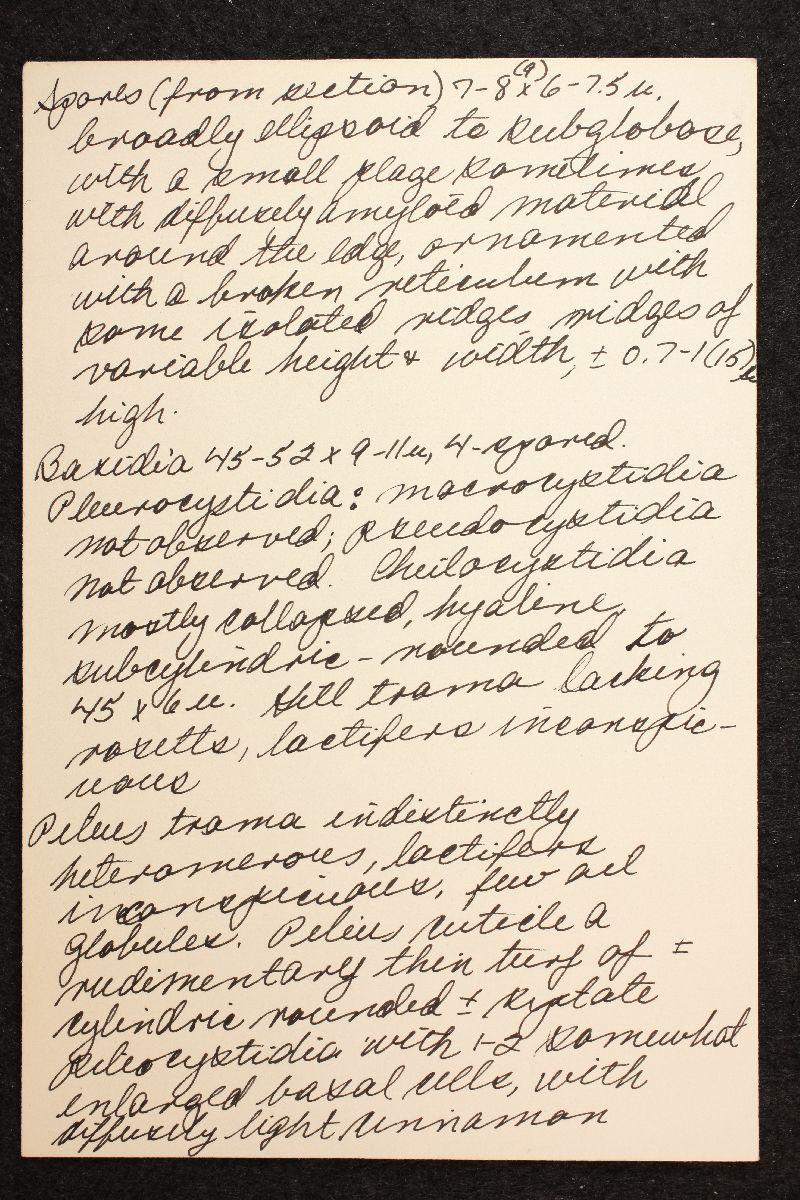 Spores (from section) 7-8(9) x 6-7.5 u.
broadly ellipsoid to subglobose,
with a small plage sometimes
with diffusely amyloid material
around the edge, ornamented
with a broken reticulum with
some isolated ridges, ridges of
variable height & width, ± 0.7-1(15)u
high.
Basidia 45-52 x 9-11u, 4-spored.
Pleurocystidia: macrocystidia
not observed; pseudocystidia
not observed. Cheilocystidia
mostly collapsed, hyaline,
subcylindric-rounded to
45 x 6 u. Gill trama lacking
rosetts, lactifers inconspic-
uous
Pileus trama indistinctly
heteromerous, lactifers
inconspicuous, few oil
globules. Pileus cuticle a
rudimentary thin turf of ±
cylindric rounded ± septate
pileocystidia with 1-2 somewhat
enlarged basal cells, with
diffusely light cinnamon